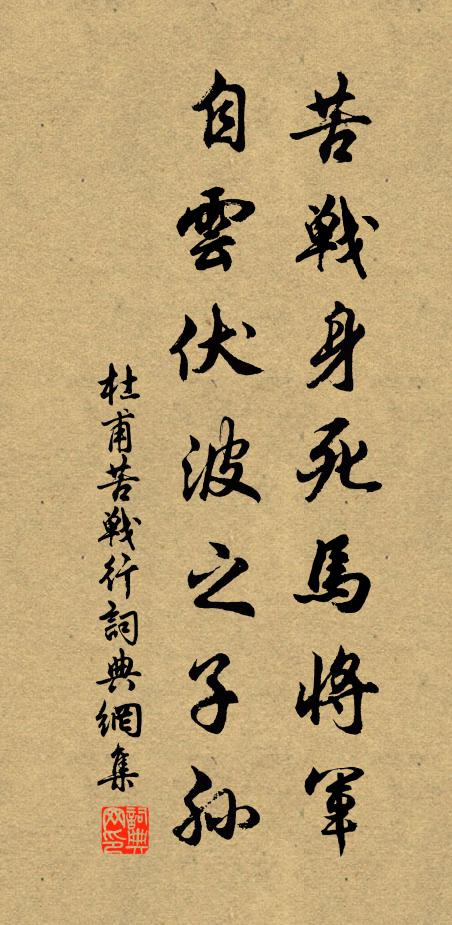 苦戰身死馬將軍
自雲伏波之子孫
杜甫苦戰行詞典網集
詞典
网印